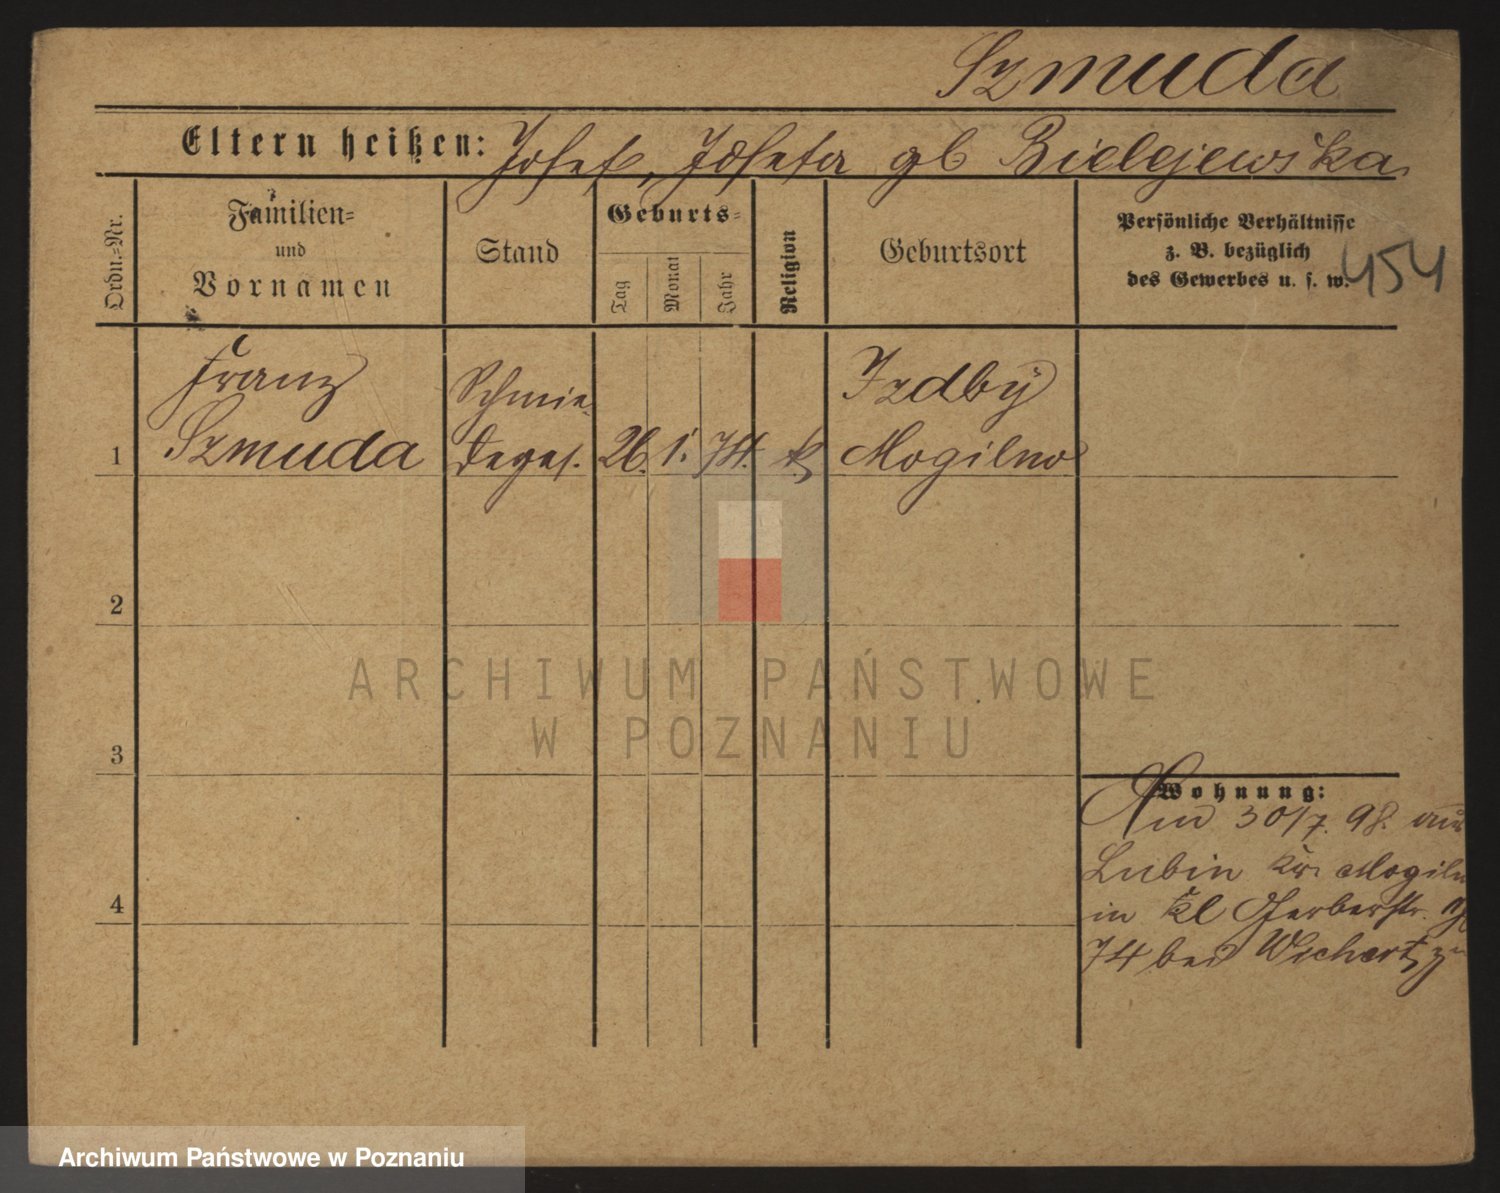 Szmuda
Eltern heißen: Josef, Josefa gb Bielejewska
Ordn.-Nr.
Familien- und Vornamen
Stand
Geburts-
Tag
Monat
Jahr
Religion
Geburtsort
Persönliche Verhältnisse
z. B. bezüglich
des Gewerbes u. s. w.
454
Franz Schmie- Izdby
1 Szmuda deges. 26. 1. 74. k Mogilno
2
3
4
ARCHIWUM PAŃSTWOWE
W POZNANIU
Wohnung:
30/7. 98. aus
Lubin Kr. Mogiln
in Kl Gerberstr.
74 bei Wichert
Archiwum Państwowe w Poznaniu